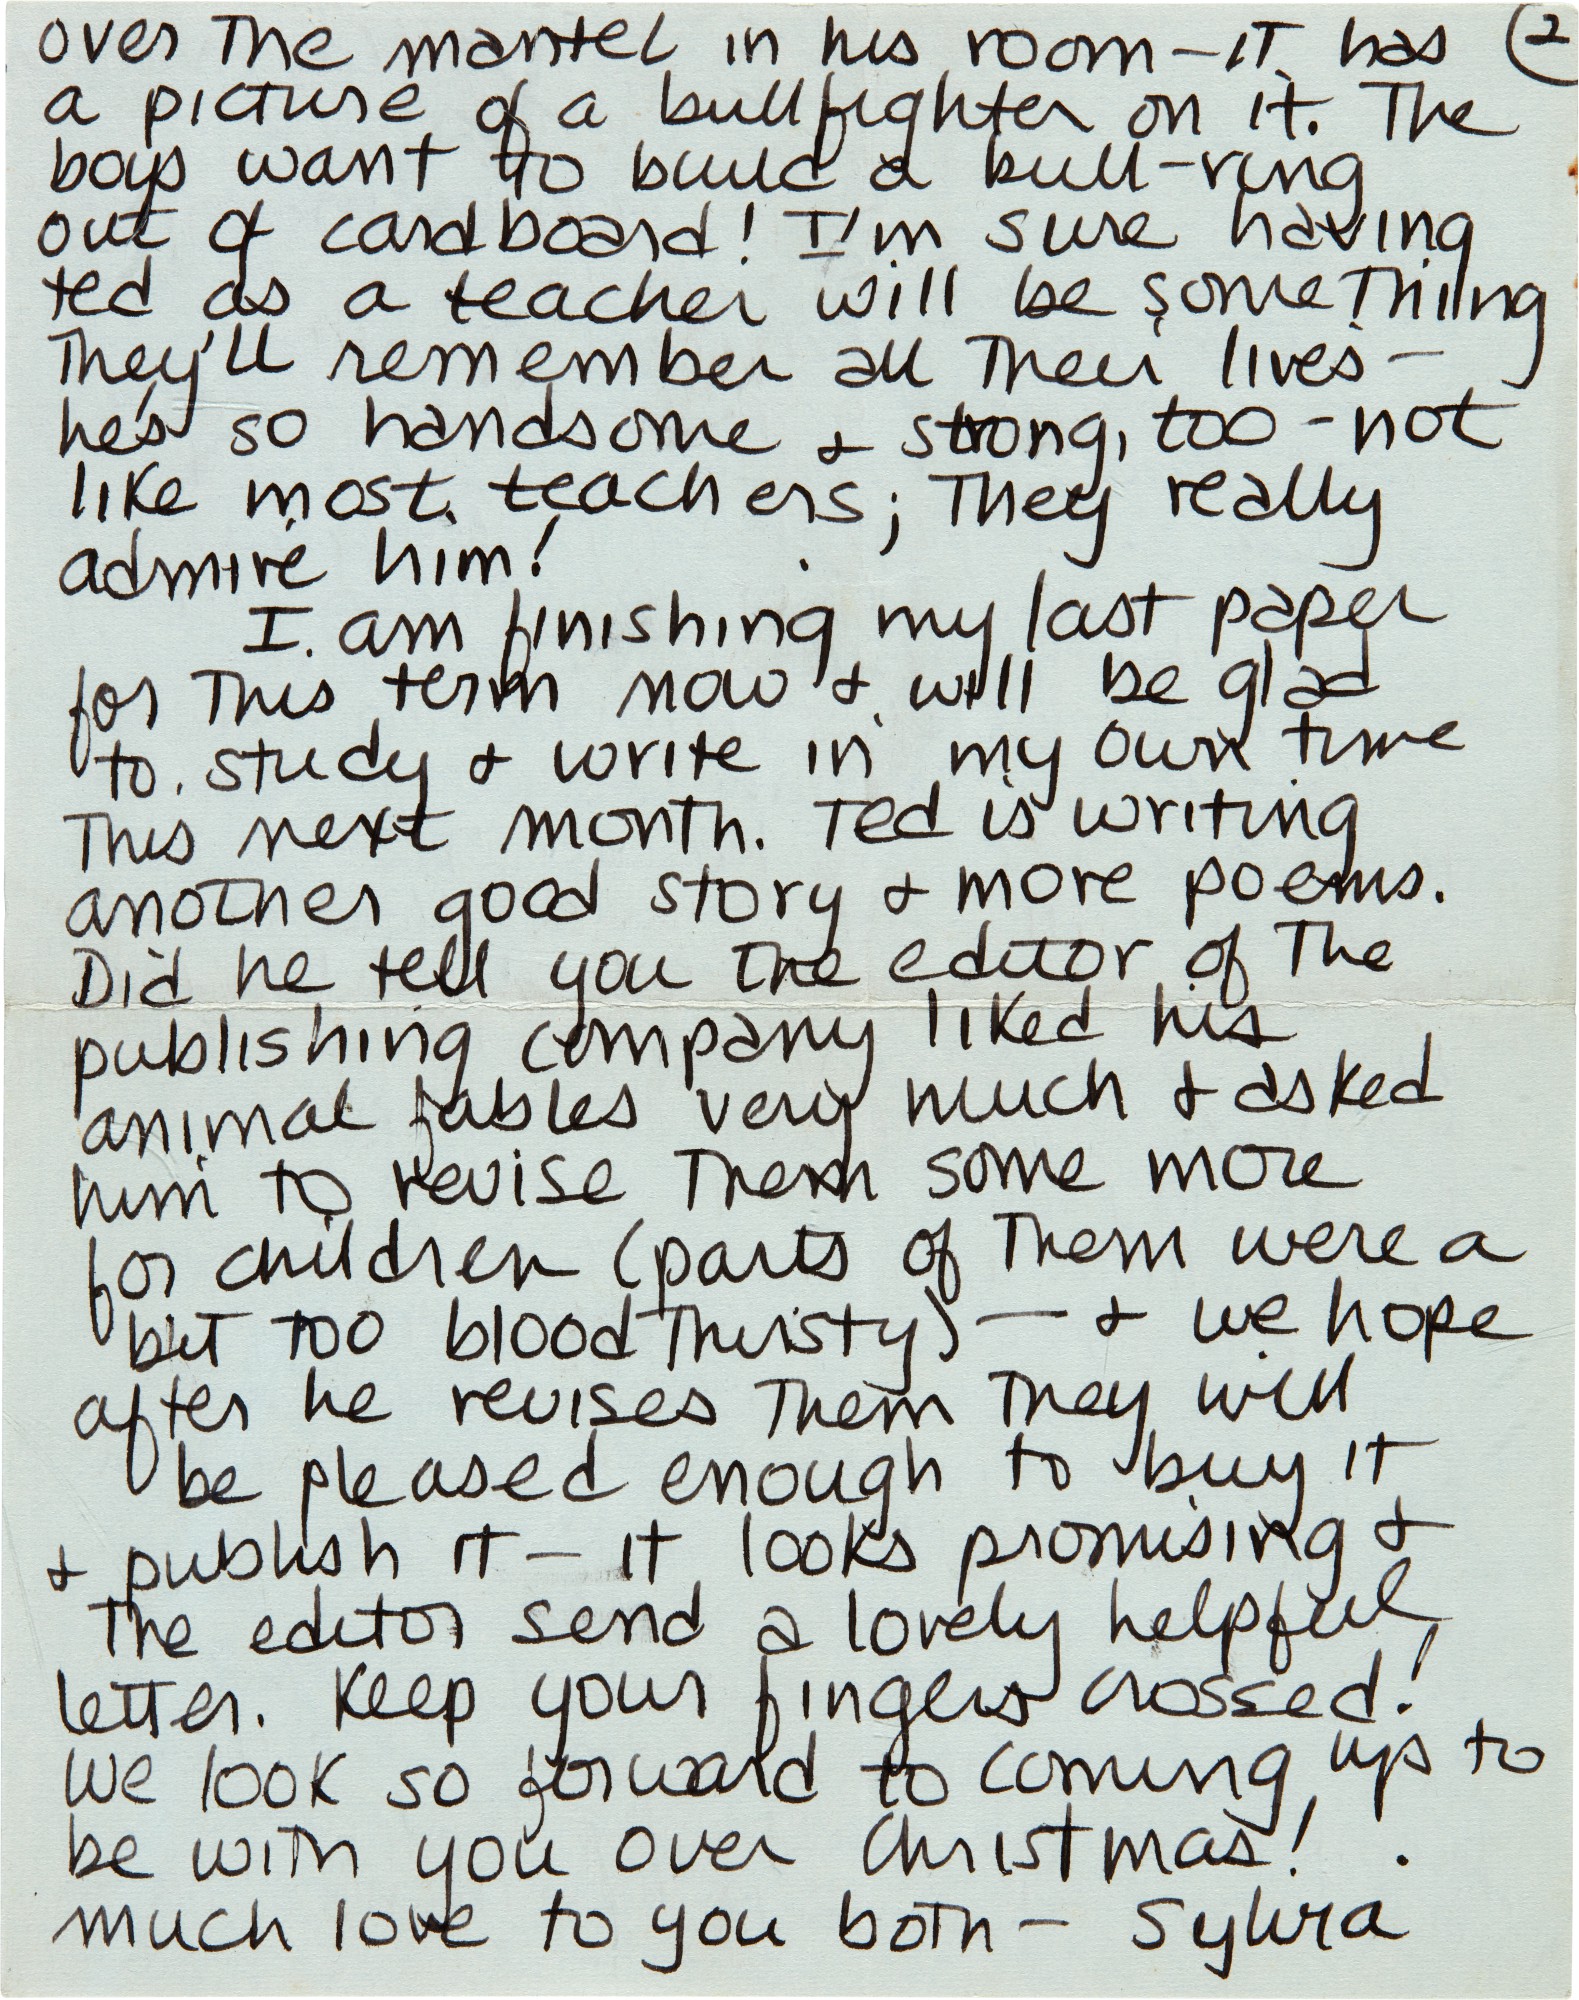 over the mantel in his room – it has (2
a picture of a bullfighter on it. The
boys want to build a bull-ring
out of cardboard! I'm sure having
ted as a teacher will be something
they'll remember all their lives –
he's so handsome & strong, too – not
like most teachers; they really
admire him!
I am finishing my last paper
for this term now & will be glad
to study & write in my own time
this next month. Ted is writing
another good story & more poems.
Did he tell you the editor of the
publishing company liked his
animal fables very much & asked
him to revise them some more
for children (parts of them were a
bit too bloodthirsty) — & we hope
after he revises them they will
be pleased enough to buy it
& publish it – it looks promising &
the editor send a lovely helpful
letter. Keep your fingers crossed!
We look so forward to coming up to
be with you over Christmas!
much love to you both – Sylvia